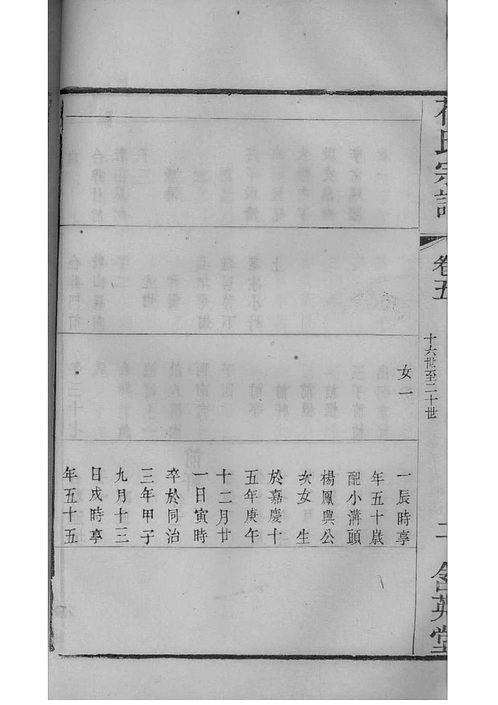 氏宗譜
卷五
十六世至二十世
二
含英堂
女一
一辰時享
年五十歲
配小溝頭
楊鳳興公
次女 生
於嘉慶十
五年庚午
十二月廿
一日寅時
卒於同治
三年甲子
九月十三
日戌時享
年五十五